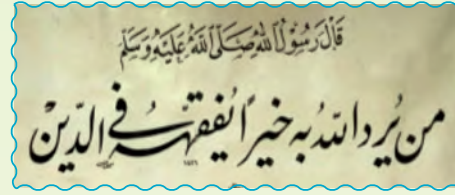 قَالَ رَسُوْلُ اللهِ صَلَّى اللهُ عَلَيْهِ وَسَلَّمَ
من يُرِدِ اللّٰهُ بِه خيرًا يُفقهّهُ فِي الدّين